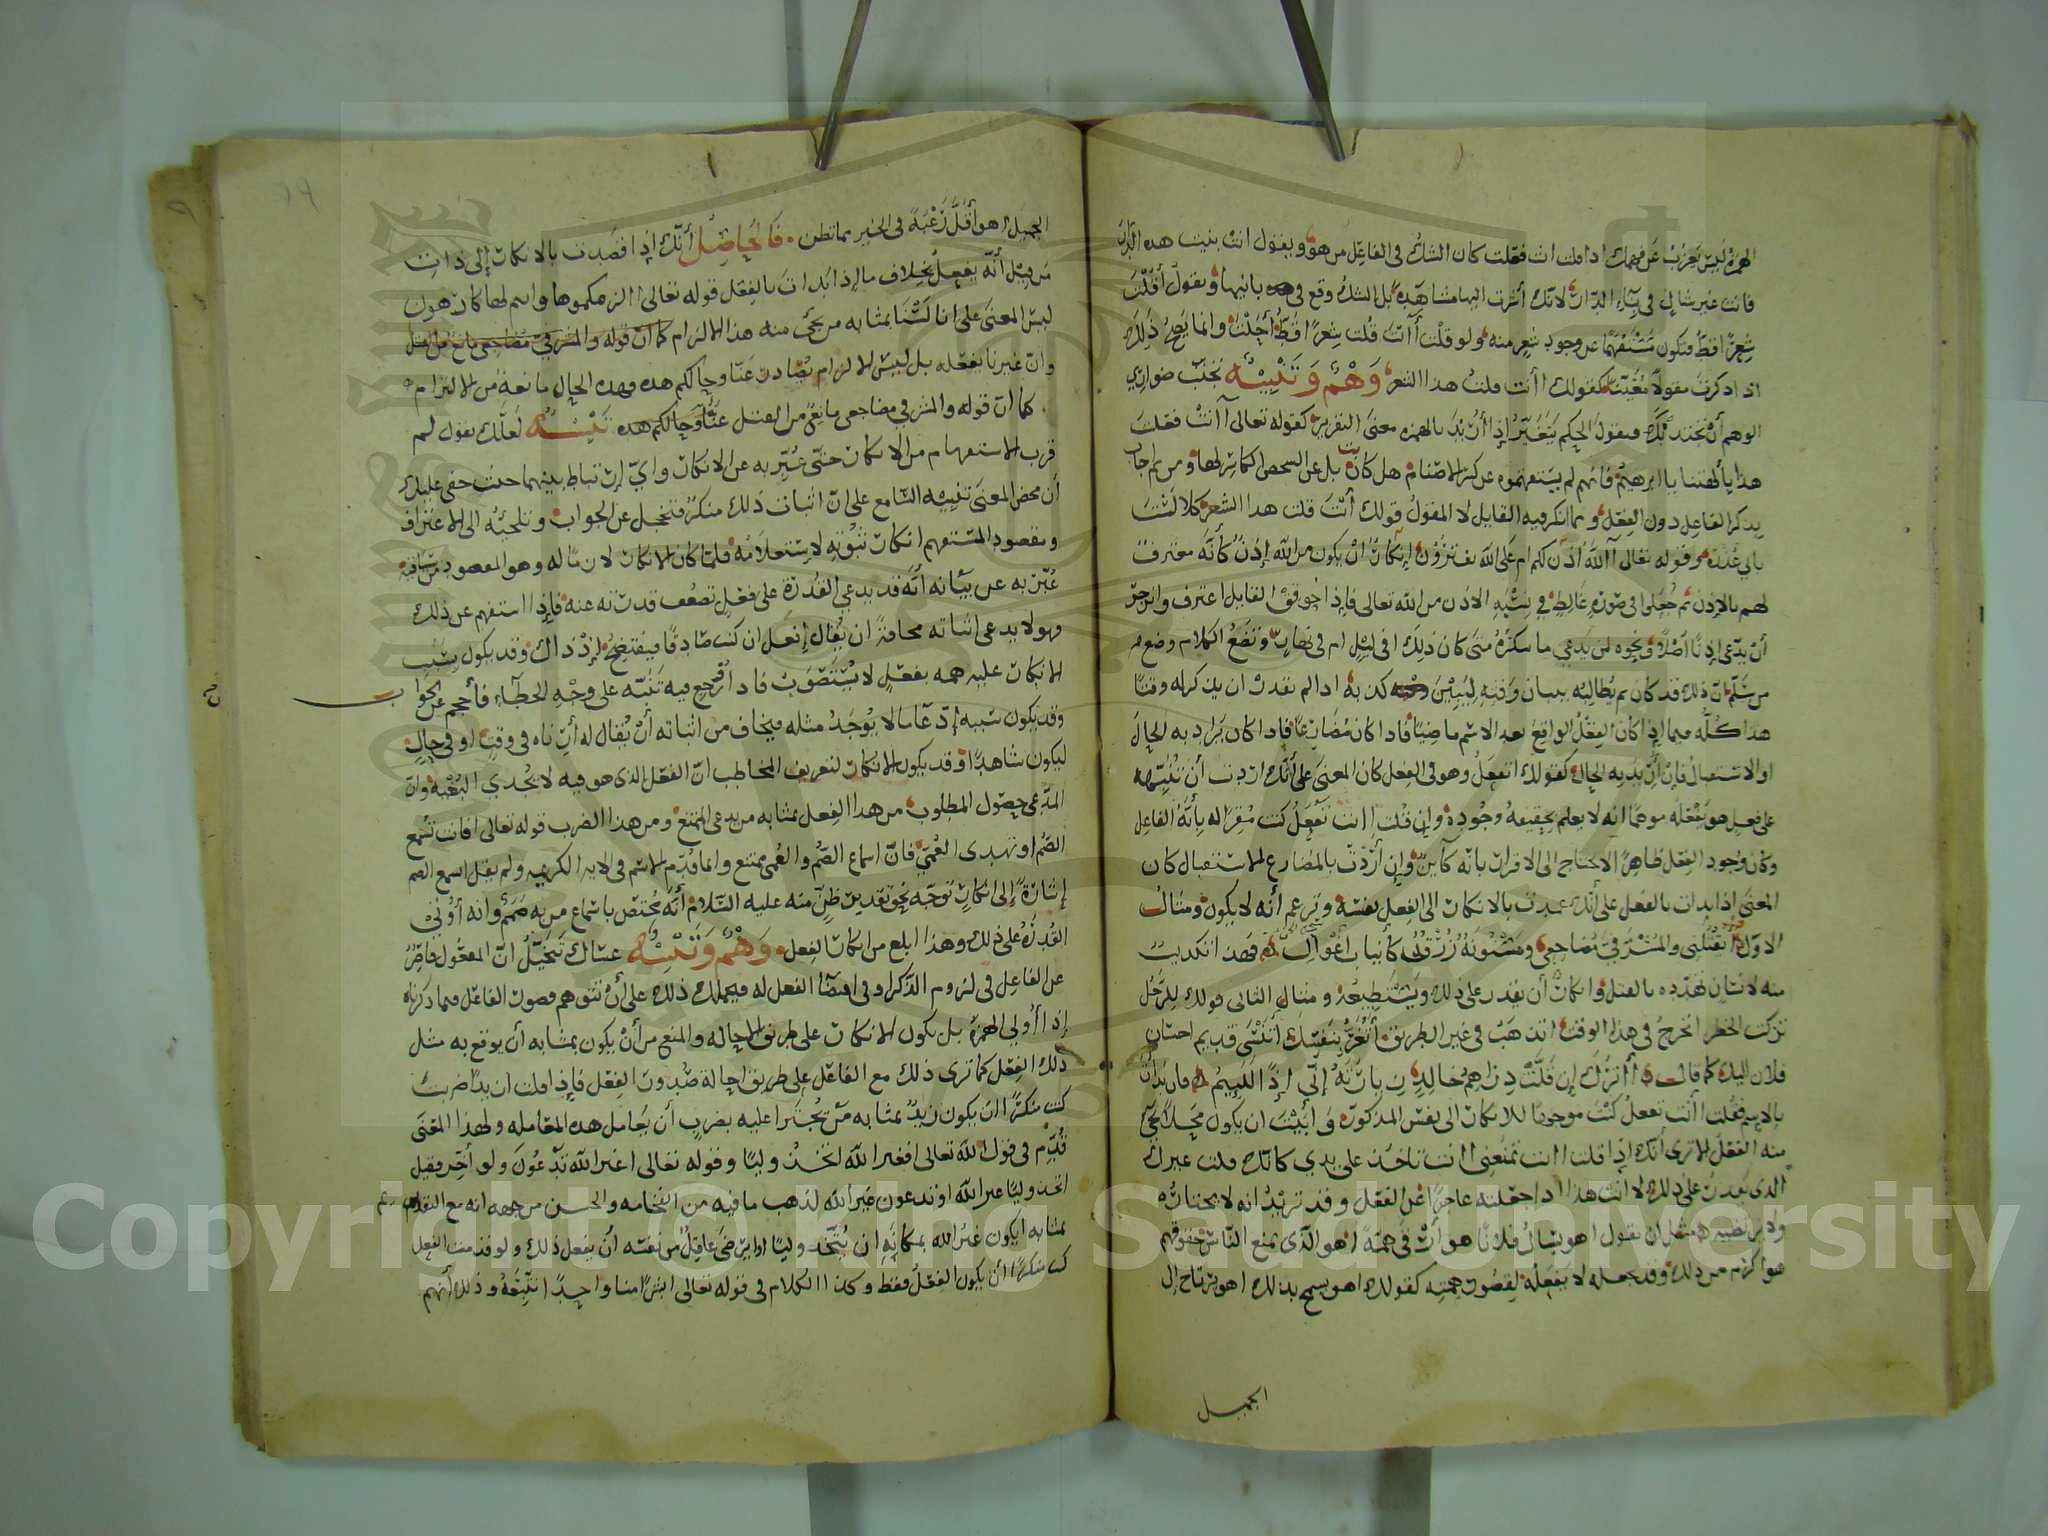 الهمزة ليس يعزب عن فهمك اذا قلت انت فعلت كان الشك فى الفاعل من هو ويقول انت بنيت هذه الدار
فانت غير شاك فى بناء الدار لانك أشرت اليها مشاهدة بل الشك وقع فى بانيها ويقول أقلت
شعرا قط فتكون مستفهما عن وجود شعر منه ولو قلت أأنت قلت شعرا قط أجلت وانما يصح ذلك
اذا ذكرت مقولا معينا كقولك أأنت قلت هذا الشعر وهم وتنبيه تجنب ضوارى
الوهم أن تجذبك فيقول الحكم يتغير إذا أريد بالهمزة معنى التقرير كقوله تعالى أأنت فعلت
هذا بآلهتنا يا ابرهيم فانهم لم يستفهموه عن كسر الاصنام هل كان بل عن الشخص الكاسر لها ومن ثم اجاب
بذكر الفاعل دون الفعل ومما انكر فيه القايل لا المقول قولك أأنت قلت هذا الشعر كلا لست
بابى عذره وقوله تعالى آلله أذن لكم ام على الله تفترون إنكار أن يكون من الله إذن كأنه معترف
لهم بالإذن ثم جعلوا فى صورة غالط فى نسبة الاذن من الله تعالى فاذا حوقق القايل اعترف وانزجر
أن يدعى إذنا أصلا ونحوه لمن يدعى ما تنكره متى كان ذلك افى ليل ام فى نهار وتضع الكلام وضع
من سلم ان ذلك قد كان ثم يطالبه ببيان وقته ليبين كذبه اذا لم يقدر ان يذكر له وقتا
هذا كله فيما إذا كان الفعل الواقع بعد الاسم ماضيا فاذا كان مضارعا فاذا كان يراد به الحال
او الاستقبال فان أريد به الحال كقولك اتفعل وهو فى الفعل كان المعنى على أنك اردت أن تنبهه
على فعل هو يفعله موهما انه لا يعلم بحقيقة وجوده وإن قلت أأنت تفعل كنت مقررا له بأنه الفاعل
وكان وجود الفعل ظاهرا لا يحتاج الى الاقرار بانه كآين وإن أردت بالمضارع الاستقبال كان
المعنى إذا بدات بالفعل على أنك عمدت بالانكار الى الفعل نفسه وتزعم أنه لا يكون ومثال
الاول أيقتلنى والمشرفى مضاجعى ومسنونة زرق كأنياب أغوال فهذا تكذيب
منه لانسان تهدده بالقتل وانكار أن يقدر على ذلك ويستطيعه ومثال الثانى قولك للرجل
تركب الخطر اتخرج فى هذا الوقت اتذهب فى غير الطريق أتغرر بنفسك أتنسى قديم احسان
فلان اليك كما قال أأترك إن قلت دراهم خالد زيارته إنى إذا للئيم فان بدات
بالاسم فقلت أأنت تفعل كنت موجها للانكار الى نفس المذكور وأبيت ان يكون محلا لمجىء
منه الفعل الا ترى أنك إذا قلت اانت تمنعنى اانت تاخذ على يدى كانك قلت غيرك
الذى يقدر على ذلك لا انت هذا اذا جعلته عاجزا عن الفعل وقد تريد انه لا يختاره
ولا يرتضيه مثل ان تقول اهو يسال فلانا هو أرفع همة اهو الذى يمنع الناس حقوقهم
هو أكرم من ذلك وقد تجعله لا يفعله لقصور همته كقولك اهو يسمح بذلك اهو يرتاح الى
الجميل
الجميل اهو أقل رغبة فى الخير مما تظن فالحاصل أنك إذا قصدت بالانكار إلى ذات
من قيل أنه يفعل بخلاف ما إذا بدات بالفعل قوله تعالى انلزمكموها وانتم لها كارهون
ليس المعنى على انا لسنا بمثابة من يجىء منه هذا الالزام كما ان قوله والمشرفى مضاجعى مانع من القتل
وان غيرنا يفعله بل ليس الالزام بصادر عنا وحالكم هذه وهذه الحال مانعة من الالزام
كما ان قوله والمشرفى مضاجعى مانع من القتل عنا وحالكم هذه تنبيه لعلك تقول لم
قرب الاستفهام من الانكار حتى عبر به عن الانكار واى ارتباط بينهما حيث خفى عليك
أن محض المعنى تنبيه السامع على ان اثبات ذلك منكر فتخجل عن الجواب وتلجئه الى الاعتراف
ومقصود المستفهم انكار ثبوته لا ستعلامه فلما كان الانكار لازما له وهو المقصود من سياقه
عبر به عن بيانه أنه قد يدعى القدرة على فعل تضعف قدرته عنه فاذا استفهم عن ذلك
وهو لا يدعى اثباته مخافة ان يقال إفعل ان كنت صادقا فيفتضح إذ ذاك وقد يكون بسبب
الانكار عليه همه بفعل لا يستصوب فاذا روجع فيه تنبه على وجه الخطاء فأحجم عن الجواب
وقد يكون سببه إدعاءا لا يوجد مثله فيخاف من اثباته أن يقال له أرناه فى وقت او فى حال
ليكون شاهدا وقد يكون الانكار لتعريف المخاطب ان الفعل الذى هو فيه لا يجدى البغية وان
المدعى حصول المطلوب من هذا الفعل بمثابة من يدعى الممتنع ومن هذا الضرب قوله تعالى افانت تسمع
الصم او تهدى العمى فان اسماع الصم والعمى ممتنع وانما قدم الاسم فى الاية الكريمة ولم يقل اسمع الصم
إشارة إلى انكار توجه نحو تقدير ظن منه عليه السلام أنه مختص باسماع من به صمم وانه أوتى
القدرة على ذلك وهذا ابلغ من انكار الفعل وهم وتنبيه عساك تتخيل ان المفعول قاصر
عن الفاعل فى لزوم الذكر او فى اقتضا الفعل له فيحملك ذلك على أن تتوهم قصور الفاعل فيما ذكرناه
إذا أولى الهمزة بل يكون الانكار على طريق الاحالة والمنع من أن يكون بمثابة أن يوقع به مثل
ذلك الفعل كما ترى ذلك مع الفاعل على طريق احالة صدور الفعل فإذا قلت ازيدا ضربت
كنت منكرا ان يكون زيد بمثابة من يجترا عليه بضرب أن يعامل هذه المعاملة ولهذا المعنى
قدم فى قول الله تعالى اغير الله اتخذ وليا وقوله تعالى اغير الله تدعون ولو أخر فقيل
اتخذ وليا غير الله او تدعون غير الله لذهب ما فيه من الفخامة والحسن من جهة انه مع التقديم
بمثابة ايكون غير الله بمكانة ان يتخذ وليا او ايرضى عاقل من نفسه أن يفعل ذلك ولو قدمت الفعل
كنت منكرا أن يكون الفعل فقط وكذا الكلام فى قوله تعالى ابشرا منا واحدا نتبعه وذلك أنهم